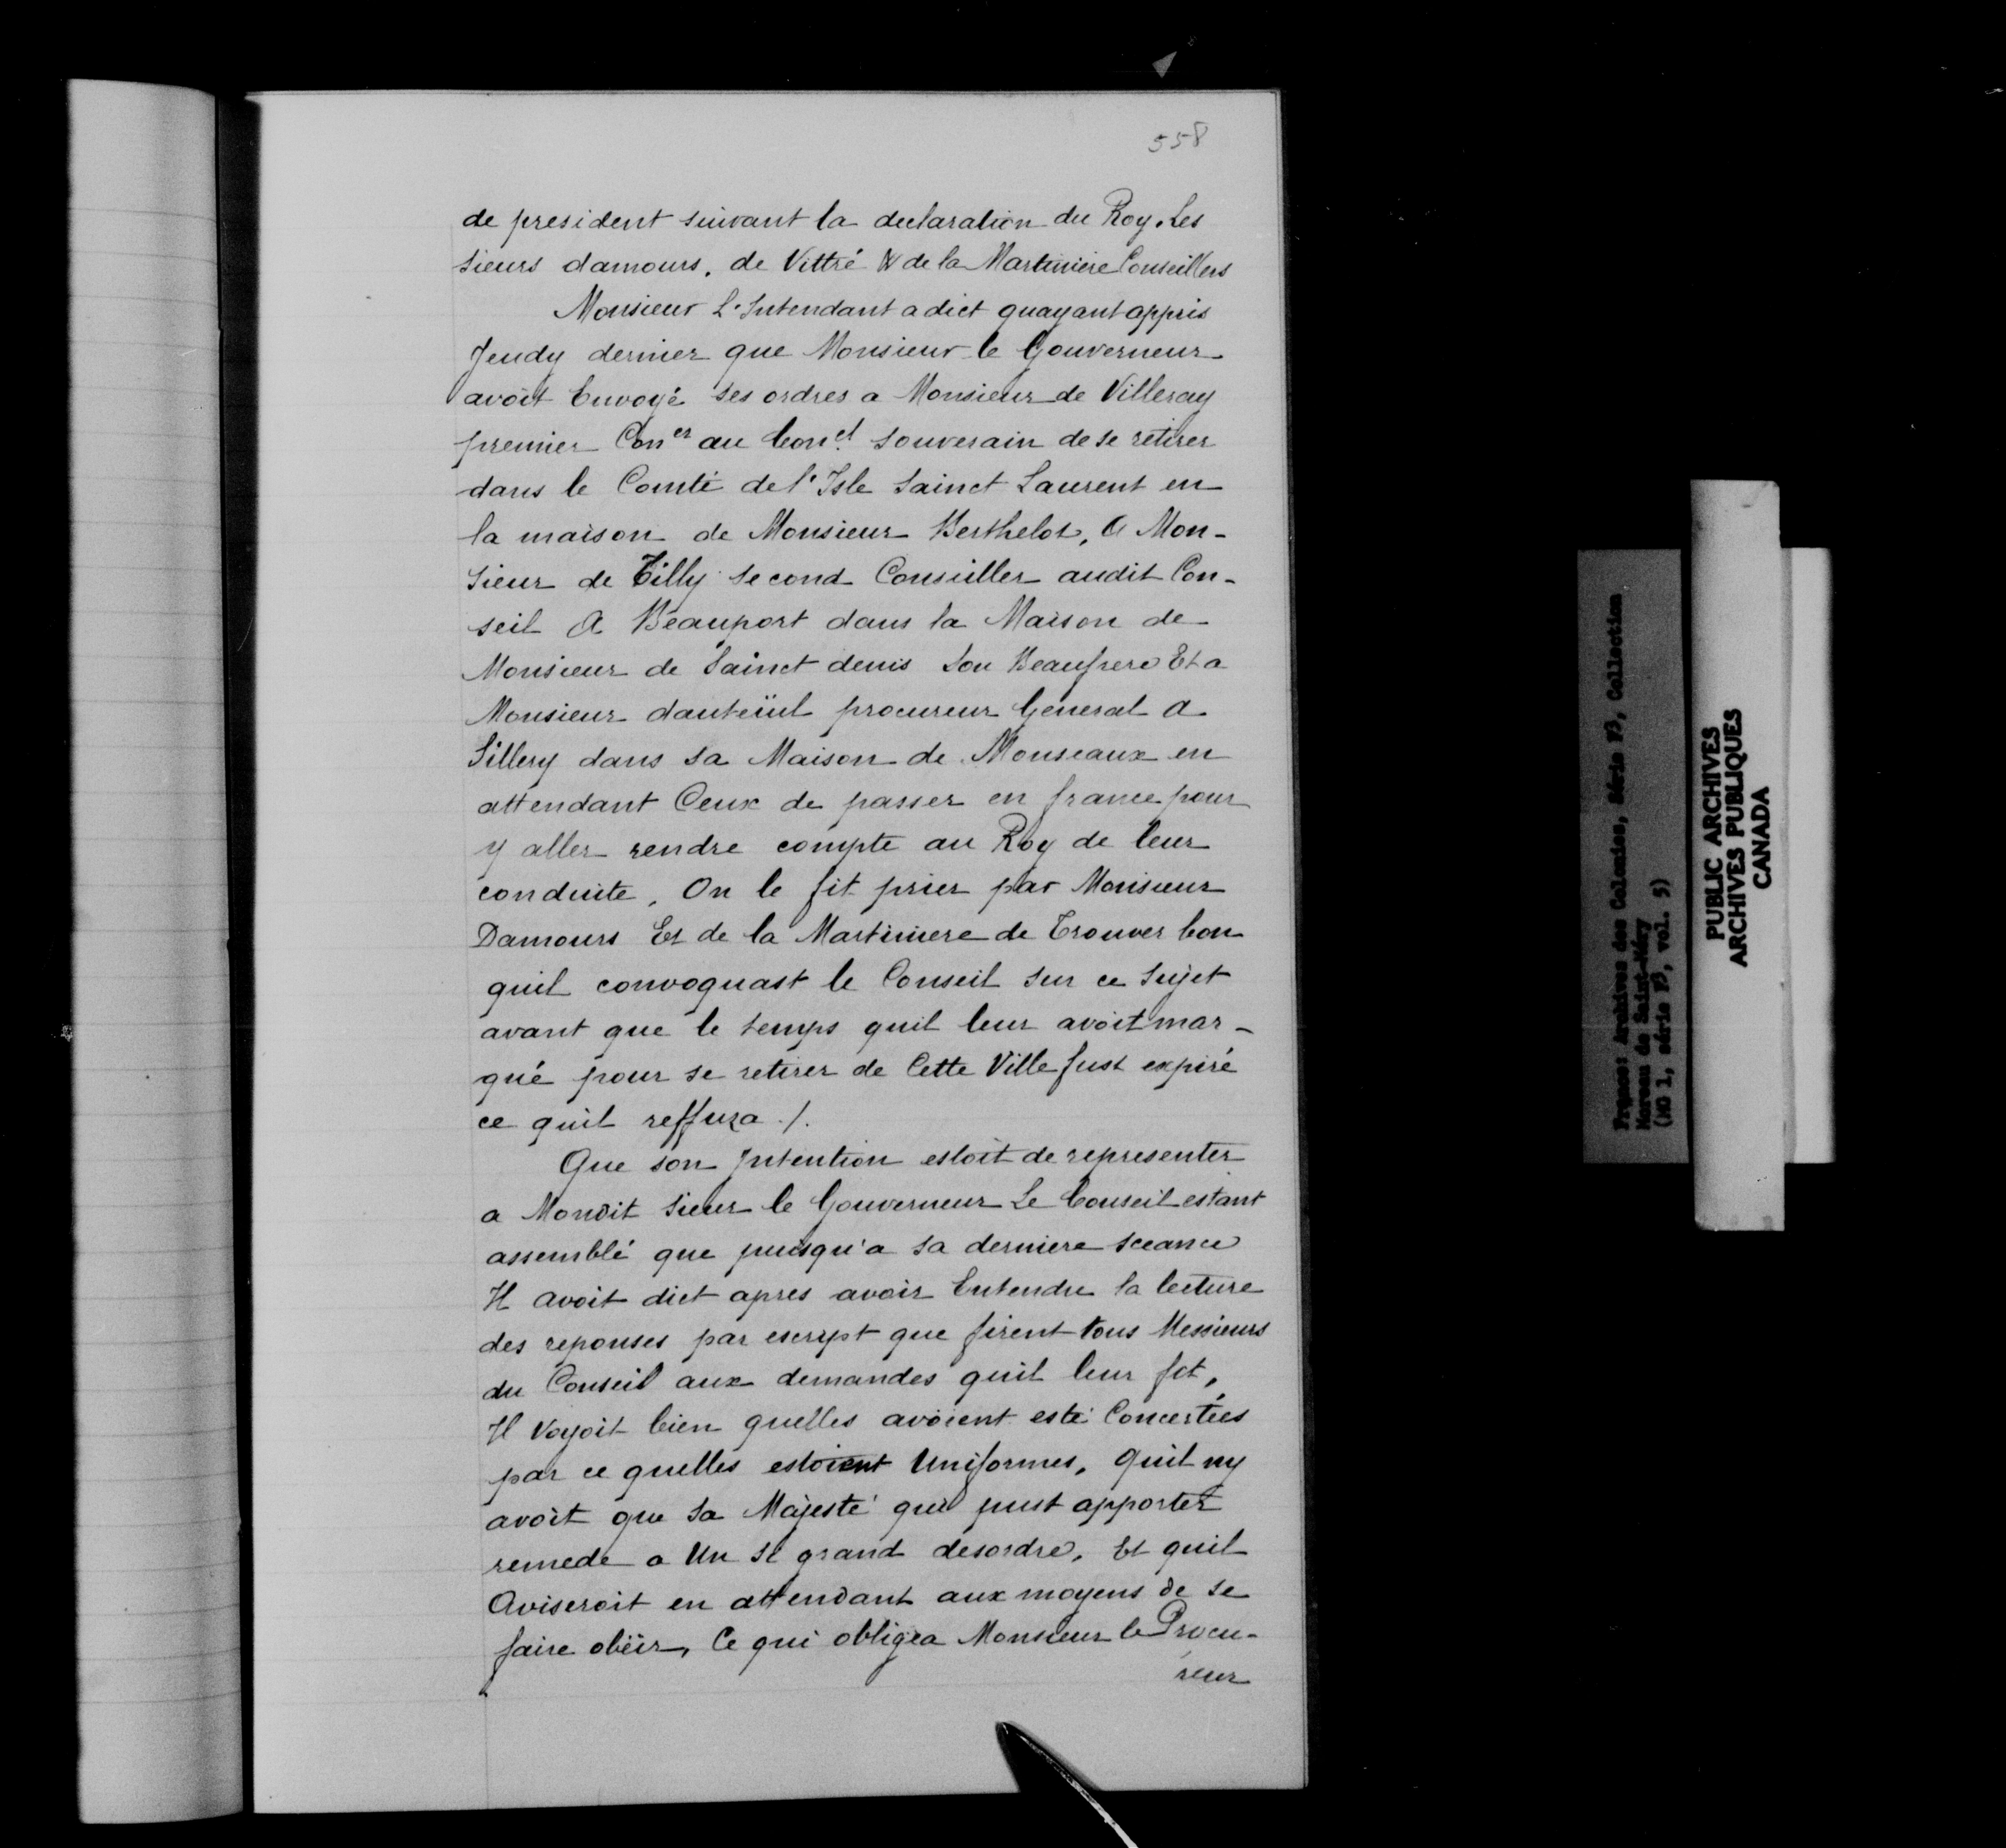 558
de president suivant la declaration du Roy. Les
sieurs damours, de Vittré & de la Martiniere Conseillers
Monsieur L'Intendant a dict quayant appris
Jeudy dernier que Monsieur le Gouverneur
avoit Envoyé ses ordres a Monsieur de Villeray
premier Con er au Con el souverain de se retirer
dans le Comté de l'Isle Sainct Laurent en
la maison de Monsieur Berthelot, A Mon-
sieur de Tilly second Conseiller audit Con-
seil A Beauport dans la Maison de
Monsieur de Sainct denis son Beaufrere Et a
Monsieur dauteüil procureur General a
Sillery dans sa Maison de Monseaux en
attendant Ceux de passer en france pour
y aller rendre compte au Roy de leur
conduite, On le fit prier par Monsieur
Damours Et de la Martiniere de Trouver bon
quil convoquast le Conseil sur ce sujet
avant que le temps quil leur avoit mar-
qué pour se retirer de Cette Ville fust expiré
ce quil reffuza ./.
Que son Intention estoit de representer
a Mondit Sieur le Gouverneur Le Conseil estant
assemblé que puisqu'a sa derniere sceance
Il avoit dict apres avoir Entendu la lecture
des reponses par escrypt que firent tous Messieurs
du Conseil aux demandes quil leur fit,
Il Voyoit bien quelles avoient esté Concertées
par ce quelles estoient Uniformes, quil ny
avoit que sa Majesté qui pust apporter
remede a Un si grand desordre, Et quil
Aviseroit en attendant aux moyens de se
faire obëir, Ce qui obligea Monsieur le Procu-
reur
PUBLIC ARCHIVES
ARCHIVES PUBLIQUES
CANADA
France: Archives des Colonies, Série F3, Collection
Moreau de Saint-Méry
(MG 1, série F3, vol. 5)